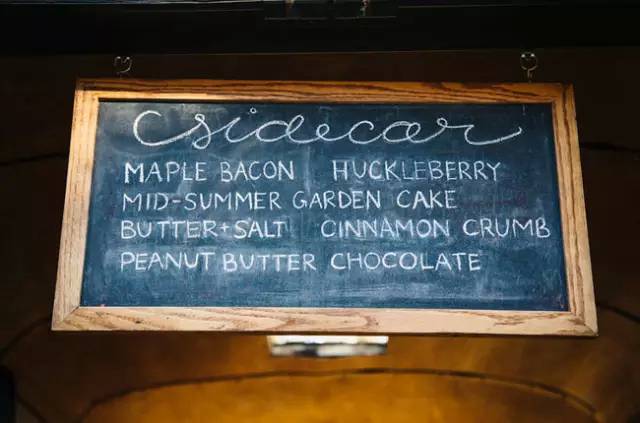 sidecar
MAPLE BACON HUCKLEBERRY
MID-SUMMER GARDEN CAKE
BUTTER+SALT CINNAMON CRUMB
PEANUT BUTTER CHOCOLATE